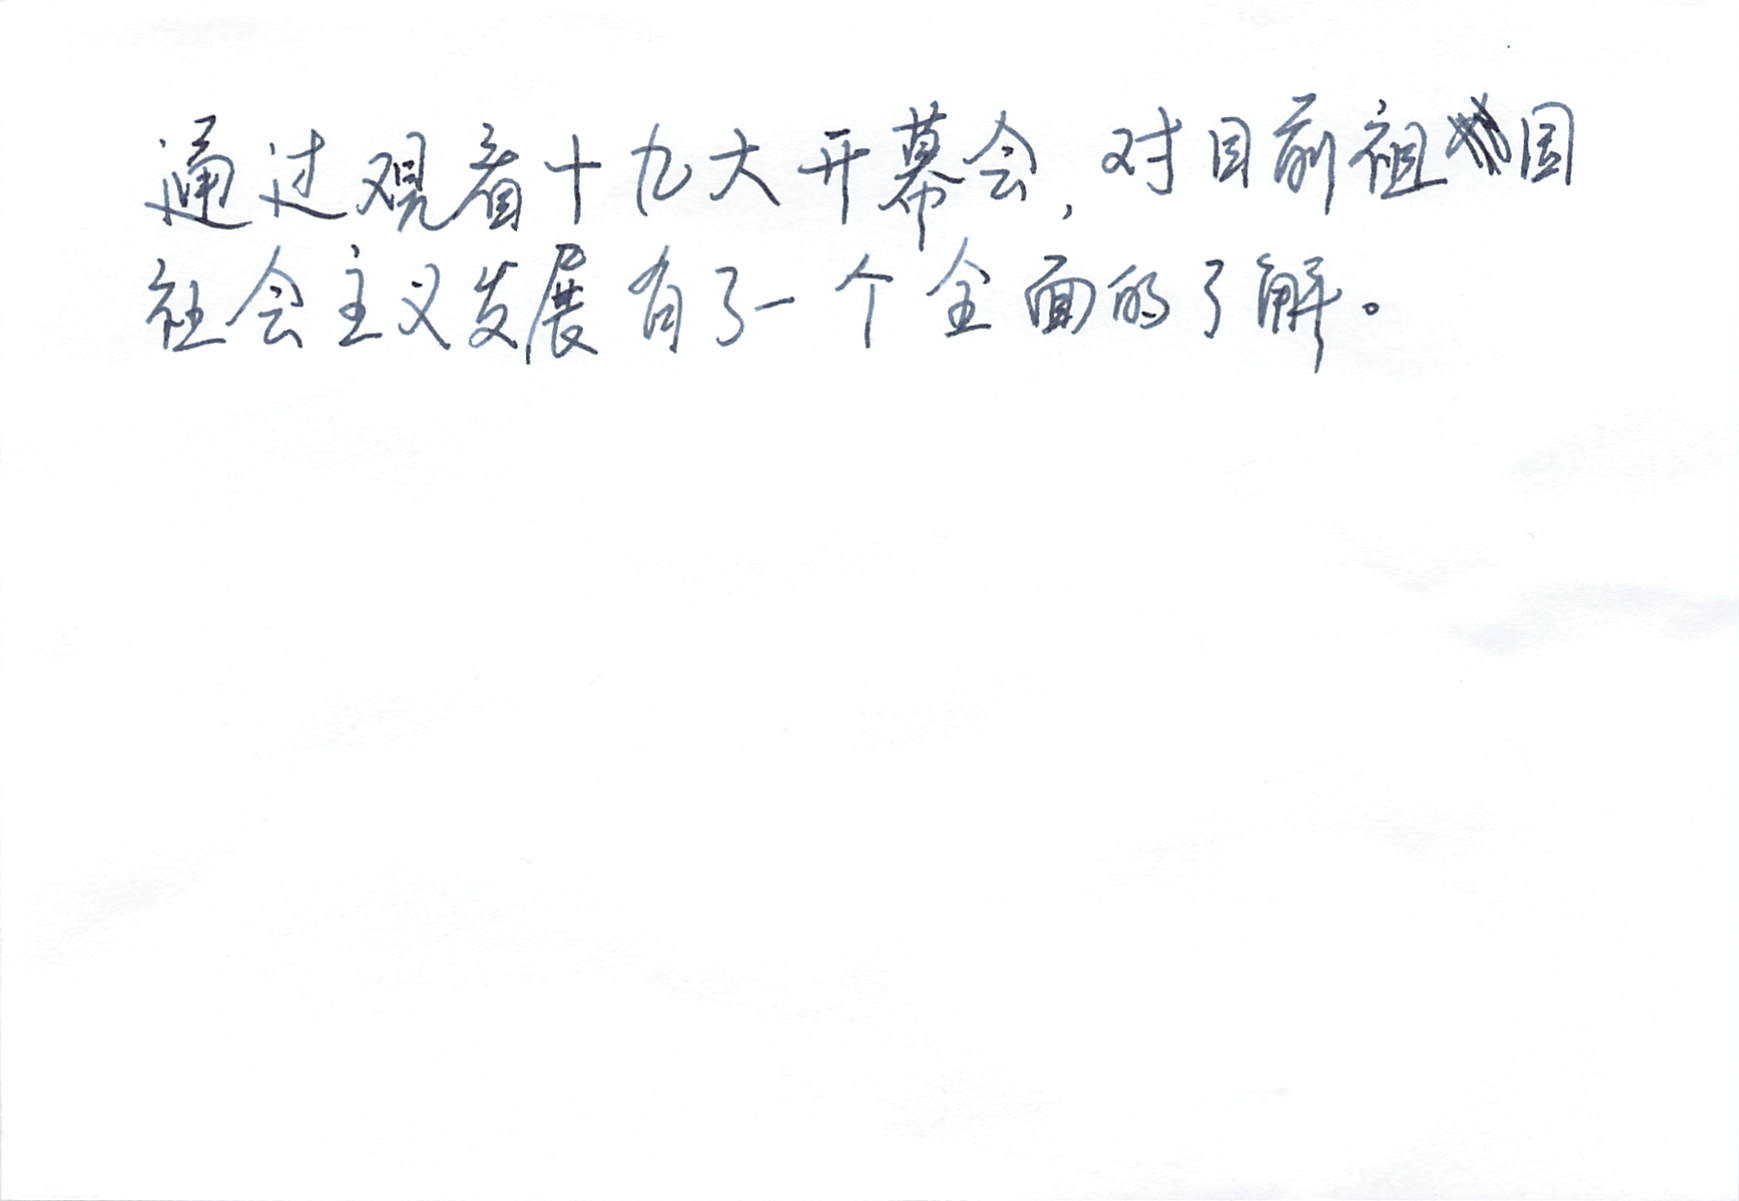 通过观看十九大开幕会，对目前祖国
社会主义发展有了一个全面的了解。